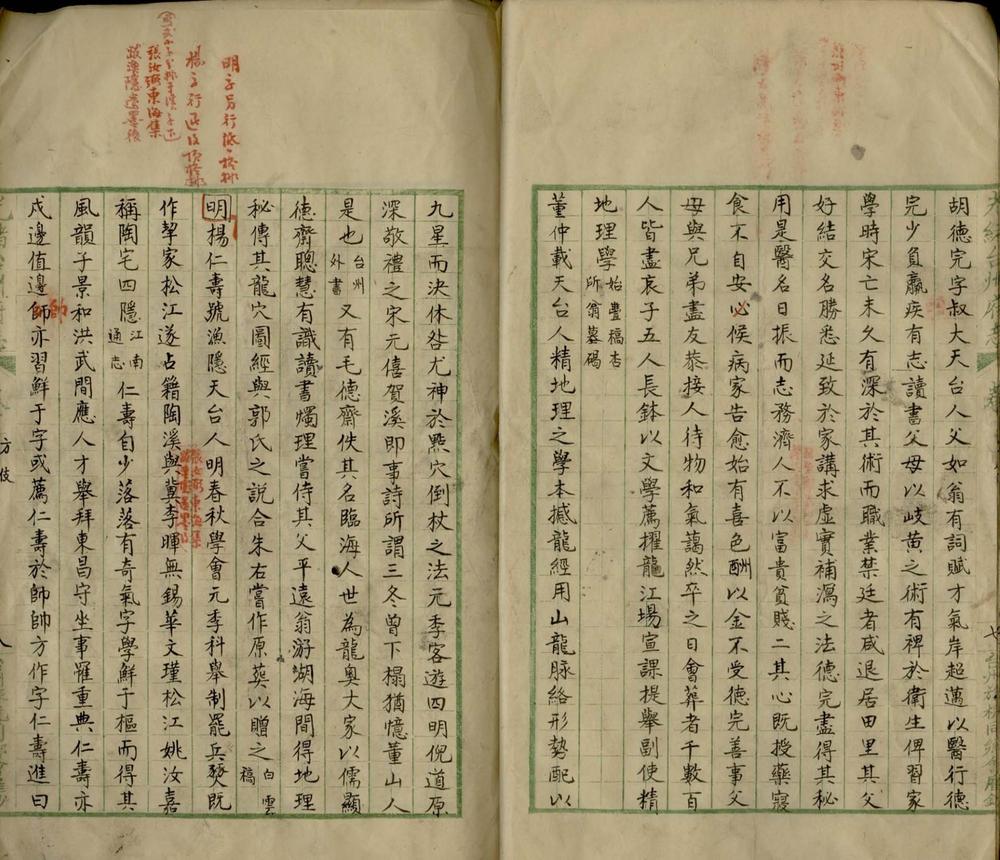 胡德完字叔大天台人父如翁有詞賦才氣岸超邁以醫行德
完少負羸疾有志讀書父母以岐黃之術有裨於衛生俾習家
學時宋亡未久有深於其術而職業禁廷者咸退居田里其父
好結交名勝悉延致於家講求虛實補瀉之法德完盡得其秘
用是醫名日振而志務濟人不以富貴貧賤二其心既授藥寢
食不自安必候病家告愈始有喜色酬以金不受德完善事父
母與兄弟盡友恭接人待物和氣藹然卒之日會葬者千數百
人皆盡哀子五人長鉢以文學薦擢龍江場宣課提舉副使精
地理學始豐稿杏所翁墓碣
董仲載天台人精地理之學本撼龍經用山龍脉絡形勢配以
九星而決休咎尤神於㸃穴倒杖之法元季客遊四明倪道原
深敬禮之宋元僖賀溪即事詩所謂三冬曾下榻猶憶董山人
是也台州外書又有毛德齋佚其名臨海人世為龍奧大家以儒顯
德齋聰慧有識讀書燭理嘗侍其父平遠翁游湖海間得地理
秘傳其龍穴圖經與郭氏之說合朱右嘗作原葬以贈之白雲稿
明楊仁壽號漁隱天台人明春秋學會元季科舉制罷兵燹既
作挈家松江遂占籍陶溪與冀李暉無錫華文瑾松江姚汝嘉
稱陶宅四隱江南通志仁壽自少落落有奇氣字學鮮于樞而得其
風韻子景和洪武間應人才舉拜東昌守坐事罹重典仁壽亦
戍邊值邊師亦習鮮于字或薦仁壽於師師方作字仁壽進曰
帥
張汝弼東海集
跋漁隱遺墨後
明字另行低一格抄
楊字行
頂格抄
張汝弼東海集
跋漁隱遺墨後
方伎
八